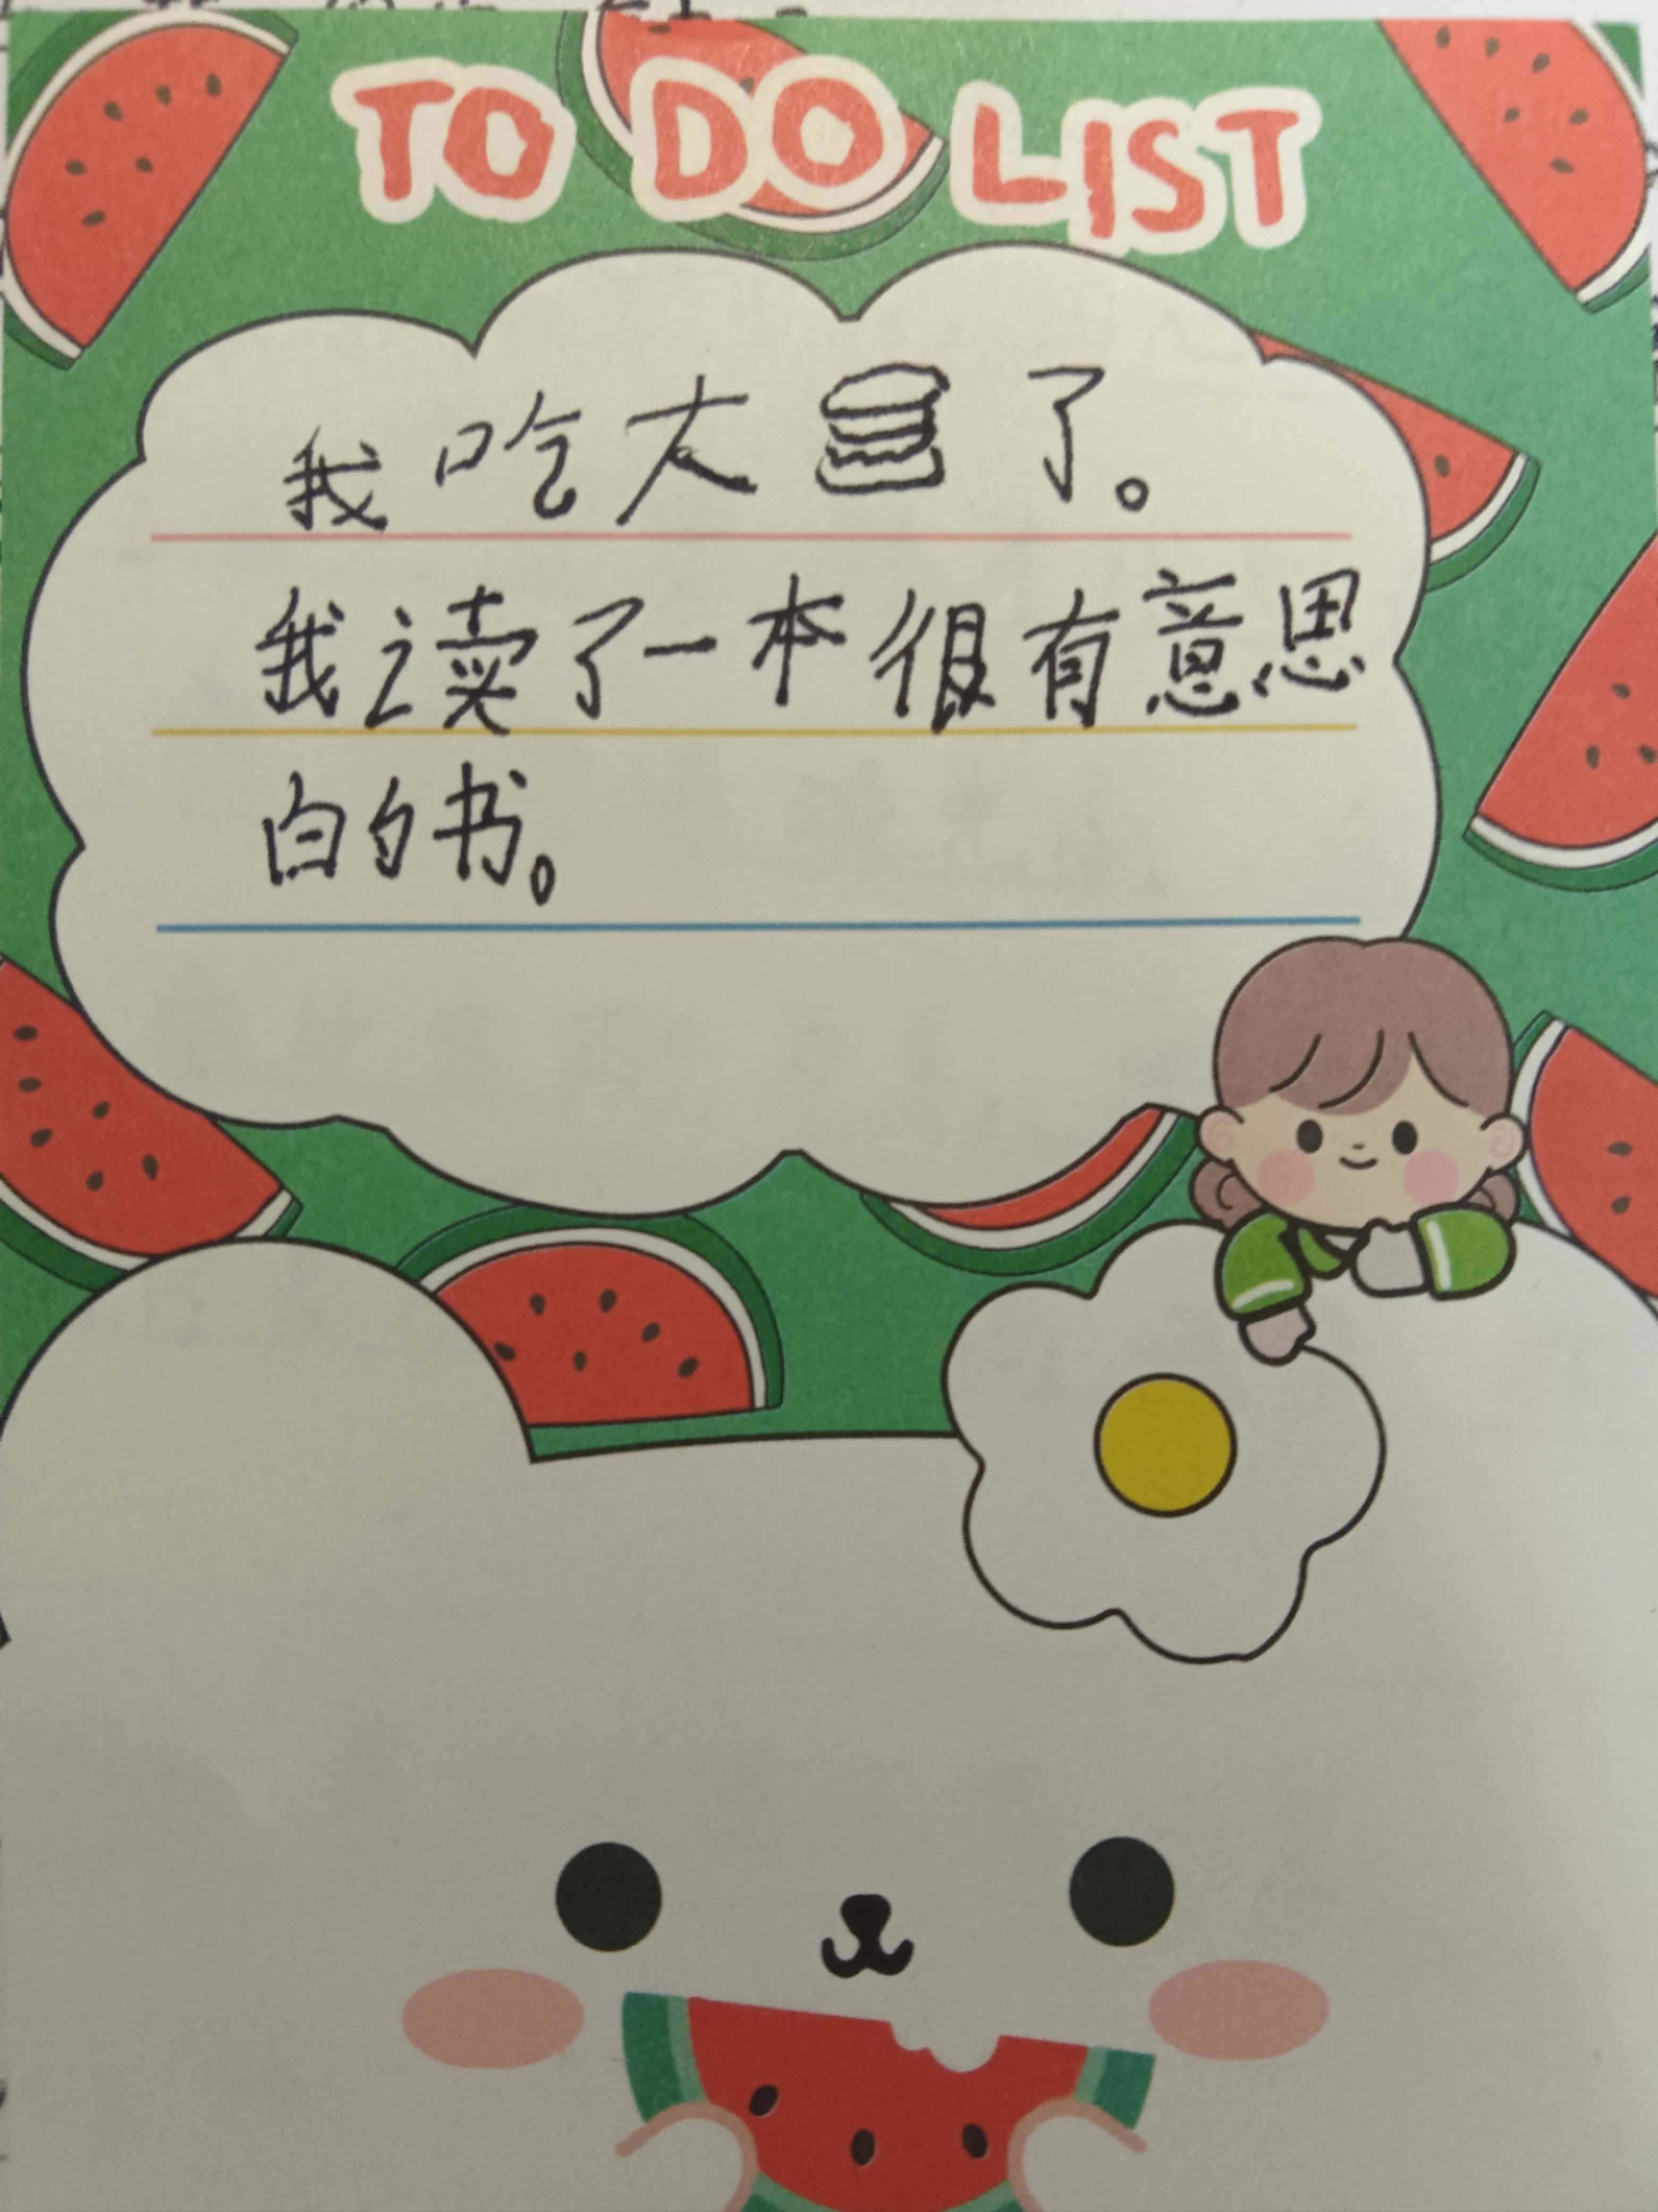 TO DO LIST
我吃大🍔了。
我读了一本很有意思
的书。